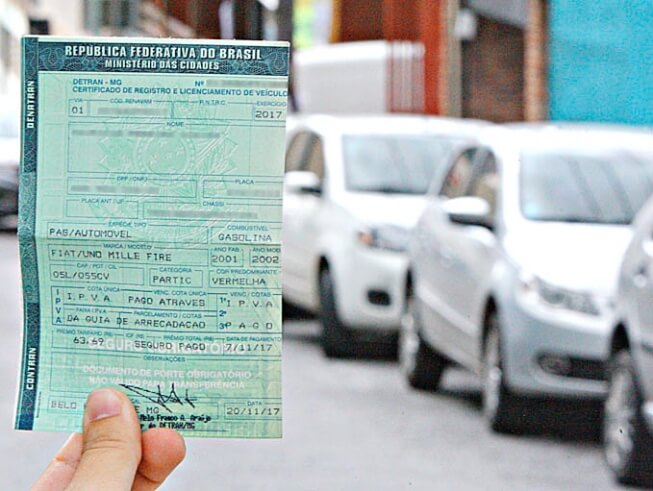 REPUBLICA FEDERATIVA DO BRASIL
MINISTÉRIO DAS CIDADES
DENATRAN
DETRAN - MG Nº
CERTIFICADO DE REGISTRO E LICENCIAMENTO DE VEÍCULO
VIA CÓD. RENAVAM R.N.T.R.C. EXERCÍCIO
01 2017
NOME
CPF / CNPJ PLACA
PLACA ANT / UF CHASSI
ESPÉCIE TIPO COMBUSTÍVEL
PAS/AUTOMOVEL GASOLINA
MARCA / MODELO ANO FAB. ANO MOD
FIAT/UNO MILLE FIRE 2001 2002
CAP / POT / CIL CATEGORIA COR PREDOMINANTE
05L/055CV PARTIC VERMELHA
COTA ÚNICA VENC. COTA ÚNICA VENC. / COTAS
I.P.V.A PAGO ATRAVES 1ª I.P.V.A
FAIXA I.P.V.A. PARCELAMENTO / COTAS 2ª
DA GUIA DE ARRECADACAO 3ª P A G O
IPVA
PRÊMIO TARIFÁRIO (R$) IOF (R$) PRÊMIO TOTAL (R$) DATA DE PAGAMENTO
63.69 SEGURO PAGO 7/11/17
OBSERVAÇÕES
DOCUMENTO DE PORTE OBRIGATÓRIO
NÃO VÁLIDO PARA TRANSFERÊNCIA
CONTRAN
DATA
BELO MG 20/11/17
Franco A. Araújo
DETRAN/MG